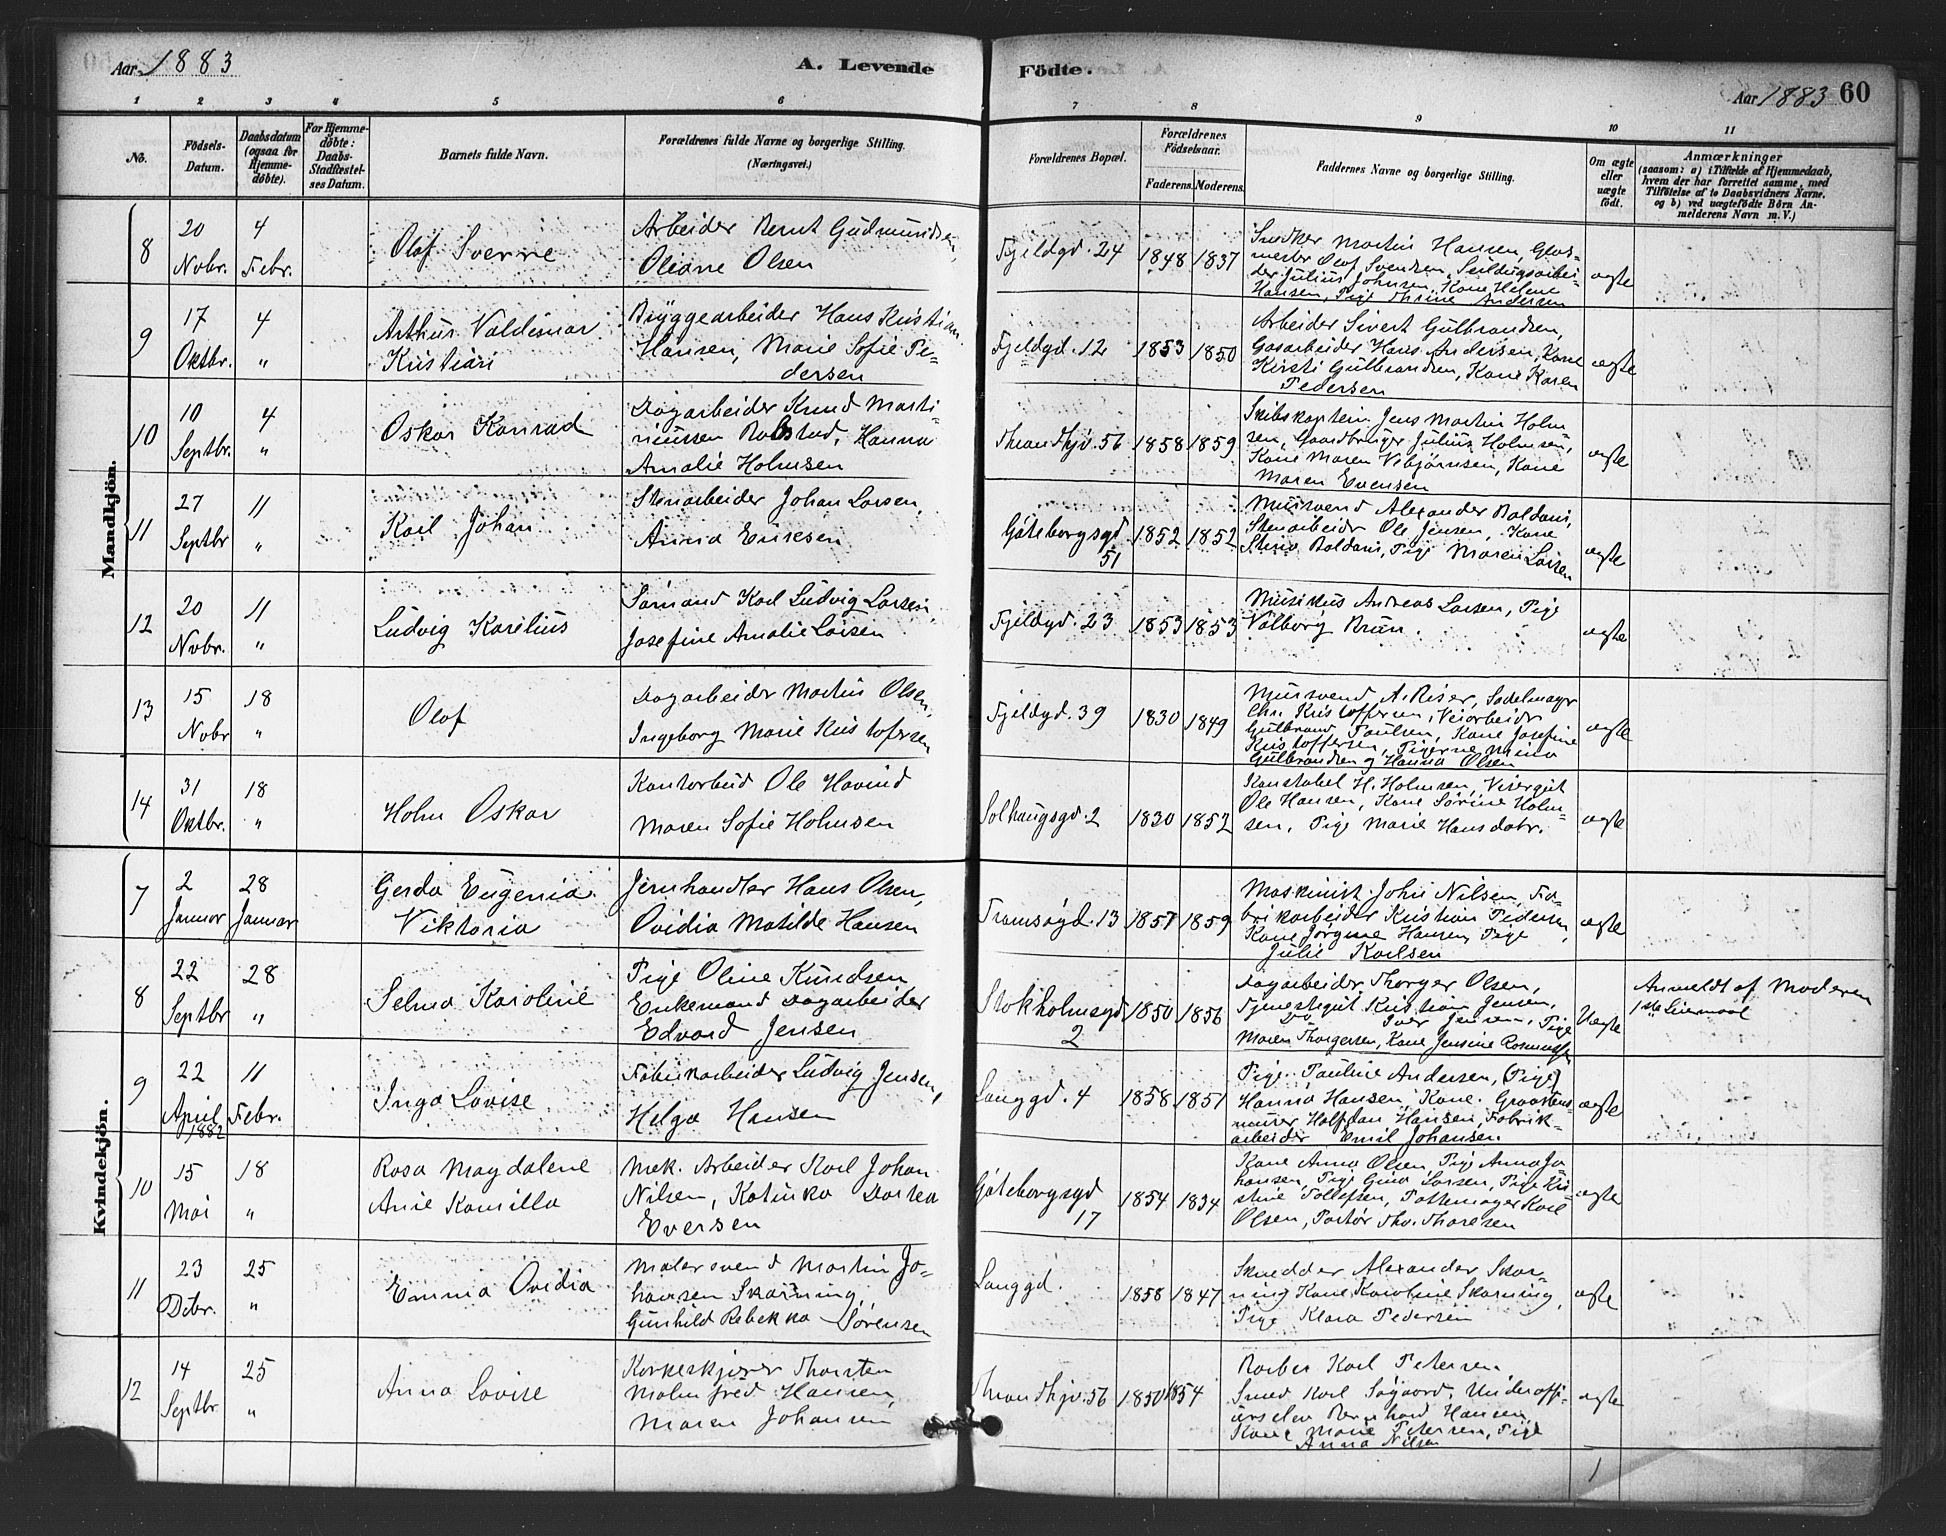 Aar 1883
A. Levende
Födte.
Aar 1883 60
1 2 3 4 5 6 7 8 9 10 11
No.
Födsels-Datum.
Daabsdatum (ogsaa for Hjemme-döbte).
For Hjemme-döbte: Daabs-Stadfæstel-ses Datum.
Barnets fulde Navn.
Forældrenes fulde Navne og borgerlige Stilling. (Næringsvei.)
Forældrenes Bopæl.
Forældrenes Födselsaar.
Faderens. Moderens.
Faddernes Navne og borgerlige Stilling.
Om ægte eller uægte födt.
Anmærkninger
(saasom: a) i Tilfælde af Hjemmedaab,
hvem der har forrettet samme, med
Tilföielse af to Daabsvidners Navne,
og b) ved uægtefödte Börn An-
melderens Navn m. V.)
Mandkjön.
8
20 Novbr.
4 Febr.
Olaf Sverre
Arbeider Bernt Gudmundsen,
Oliane Olsen
Fjeldgd. 24
1848 1837
Snedker Martin Hansen, Glas-
mester Olaf Svendsen, Seildugsarbei-
der Julius Johnsen, Kone Helene
Hansen, Pige Thrine Andersen
ægte
9
17 Oktbr.
4 "
Arthur Valdemar
Kristian
Bryggearbeider Hans Kristian
Hansen, Marie Sofie Pe-
dersen
Fjeldgd. 12
1853 1850
Arbeider Sivert Gulbrandsen,
Gasarbeider Hans Andersen, Kone
Kirsti Gulbrandsen, Kone Karen
Pedersen
ægte
10
10 Septbr.
4 "
Oskar Konrad
Dagarbeider Knud Marti-
niussen Rolstad, Hanna
Amalie Holmsen
Throndhjv. 56
1858 1859
Skibskaptein Jens Martin Holm
sen, Gaardbruger Julius Holmsen,
Kone Maren Vibjørnsen, Kone
Maren Evensen
ægte
11
27 Septbr
11 "
Karl Johan
Stenarbeider Johan Larsen,
Anna Eriksen
Göteborgsgd 51
1852 1852
Mursvend Alexander Baldani,
Stenarbeider Ole Jensen, Kone
Stina Baldani, Pige Maren Larsen
ægte
12
20 Novbr.
11 "
Ludvig Karelius
Sømand Karl Ludvig Larsen,
Josefine Amalie Larsen
Fjeldgd. 23
1853 1853
Musikus Andreas Larsen, Pige
Valborg Brun.
ægte
13
15 Novbr
18 "
Olaf
Dagarbeider Martin Olsen,
Ingeborg Marie Kristofersen
Fjeldgd. 39
1830 1849
Mursvend A. Riser, Sadelmager
Chr. Kristoffersen, Veiarbeider
Gulbrand Paulsen, Kone Josefine
Kristoffersen, Pigerne Mina
Gulbrandsen og Hanna Olsen
ægte
14
31 Oktbr.
18 "
Holm Oskar
Kontorbud Ole Hovind
Maren Sofie Holmsen
Solhaugsgd. 2
1830 1852
Konstabel H. Holmsen, Visergut
Ole Hansen, Kone Sørine Holm-
sen, Pige Marie Hansdatr.
ægte
Kvindekjön.
7
2 Januar
28 Januar
Gerda Eugenia
Viktoria
Jernhandler Hans Olsen,
Ovidia Matilde Hansen
Tromsøgd. 13
1857 1859
Maskinist John Nilsen, Fa-
brikarbeider Kristian Pedersen,
Kone Jørgine Hansen, Pige
Julie Karlsen
ægte
8
22 Septbr
28 "
Selma Karoline
Pige Oline Knudsen
Enkemand Dagarbeider
Edvard Jensen
Stokholmsgd 2
1850 1856
Dagarbeider Thorger Olsen,
Tjenestegut Kristian Jensen,
Do Iver Jensen, Pige
Maren Thorgersen, Kone Jensine Rasmussen
Uægte
Anmeldt af Moderen
1ste Leiermaal
9
22 April 1882
11 Febr.
Inga Lovise.
Fabrikarbeider Ludvig Jensen,
Helga Hansen
Langgd. 4
1858 1851
Pige Pauline Andersen, (Pige)
Hanna Hansen, Kone. Graastens-
murer Halfdan Hansen, Fabrik-
arbeider Emil Johansen.
ægte
10
15 Mai
18 "
Rosa Magdalene
Anie Kamilla
Mek. Arbeider Karl Johan
Nilsen, Katinka Dorthea
Eversen
Göteborgsgd 17
1854 1834
Kone Anna Olsen, Pige Anna Jo
hansen, Pige Gina Larsen, Pige Kri-
stine Tollefsen, Pottemager Karl
Olsen, Partør Thv. Thoresen
ægte
11
23 Debr.
25 "
Emma Ovidia
Malersvend Martin Jo-
hansen Skarning,
Gunhild Rebekka Sørensen
Langgd.
1858 1847
Skrædder Alexander Skar-
ning Kone Karoline Skarning,
Pige Klara Pedersen
ægte
12
14 Septbr
25 "
Anna Lovise
Korkeskjærer Thorsten
Malmfred Hansen,
Maren Johansen
Throndhjv. 56
1850 1854
Barber Karl Petersen
Smed Karl Søgaard, Underoffi-
cerselev Bernhard Hansen,
Kone Marie Petersen, Pige
Anna Nilsen
ægte
1